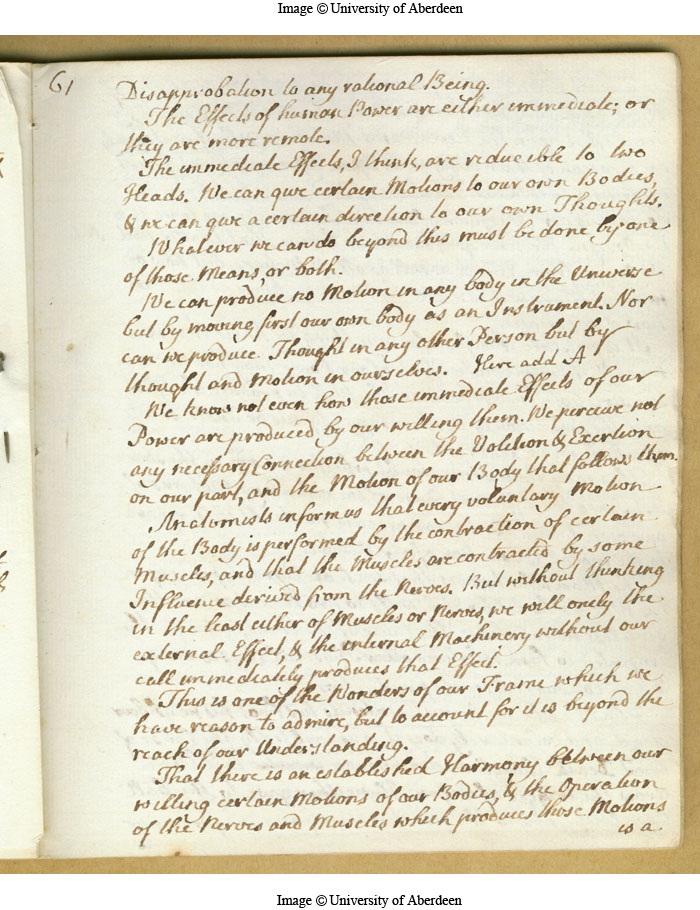 Image © University of Aberdeen
61
Disapprobation to any rational Being.
The Effects of human Power are either immediate; or
they are more remote.
The immediate Effects, I think, are reduceible to two
Heads. We can give certain Motions to our own Bodies,
& we can give a certain direction to our own Thoughts.
Whatever we can do beyond this must be done by one
of those Means, or both.
We can produce no Motion in any body in the Universe
but by moving first our own body as an Instrument. Nor
can we produce Thought in any other Person but by
thought and Motion in ourselves. Here add A
We know not even how those immediate Effects of our
Power are produced by our willing them. We perceive not
any necessary Connection between the Volition & Exertion
on our part, and the Motion of our Body that follows them.
Anatomists inform us that every voluntary Motion
of the Body is performed by the contraction of certain
Muscles, and that the Muscles are contracted by some
Influence derived from the Nerves. But without thinking
in the least either of Muscles or Nerves, we will onely the
external Effect, & the internal Machinery without our
call immediately produces that Effect.
This is one of the Wonders of our Frame which we
have reason to admire, but to account for it is beyond the
reach of our Understanding.
That there is an established Harmony between our
willing certain Motions of our Bodies, & the Operation
of the Nerves and Muscles which produces those Motions
is a
Image © University of Aberdeen